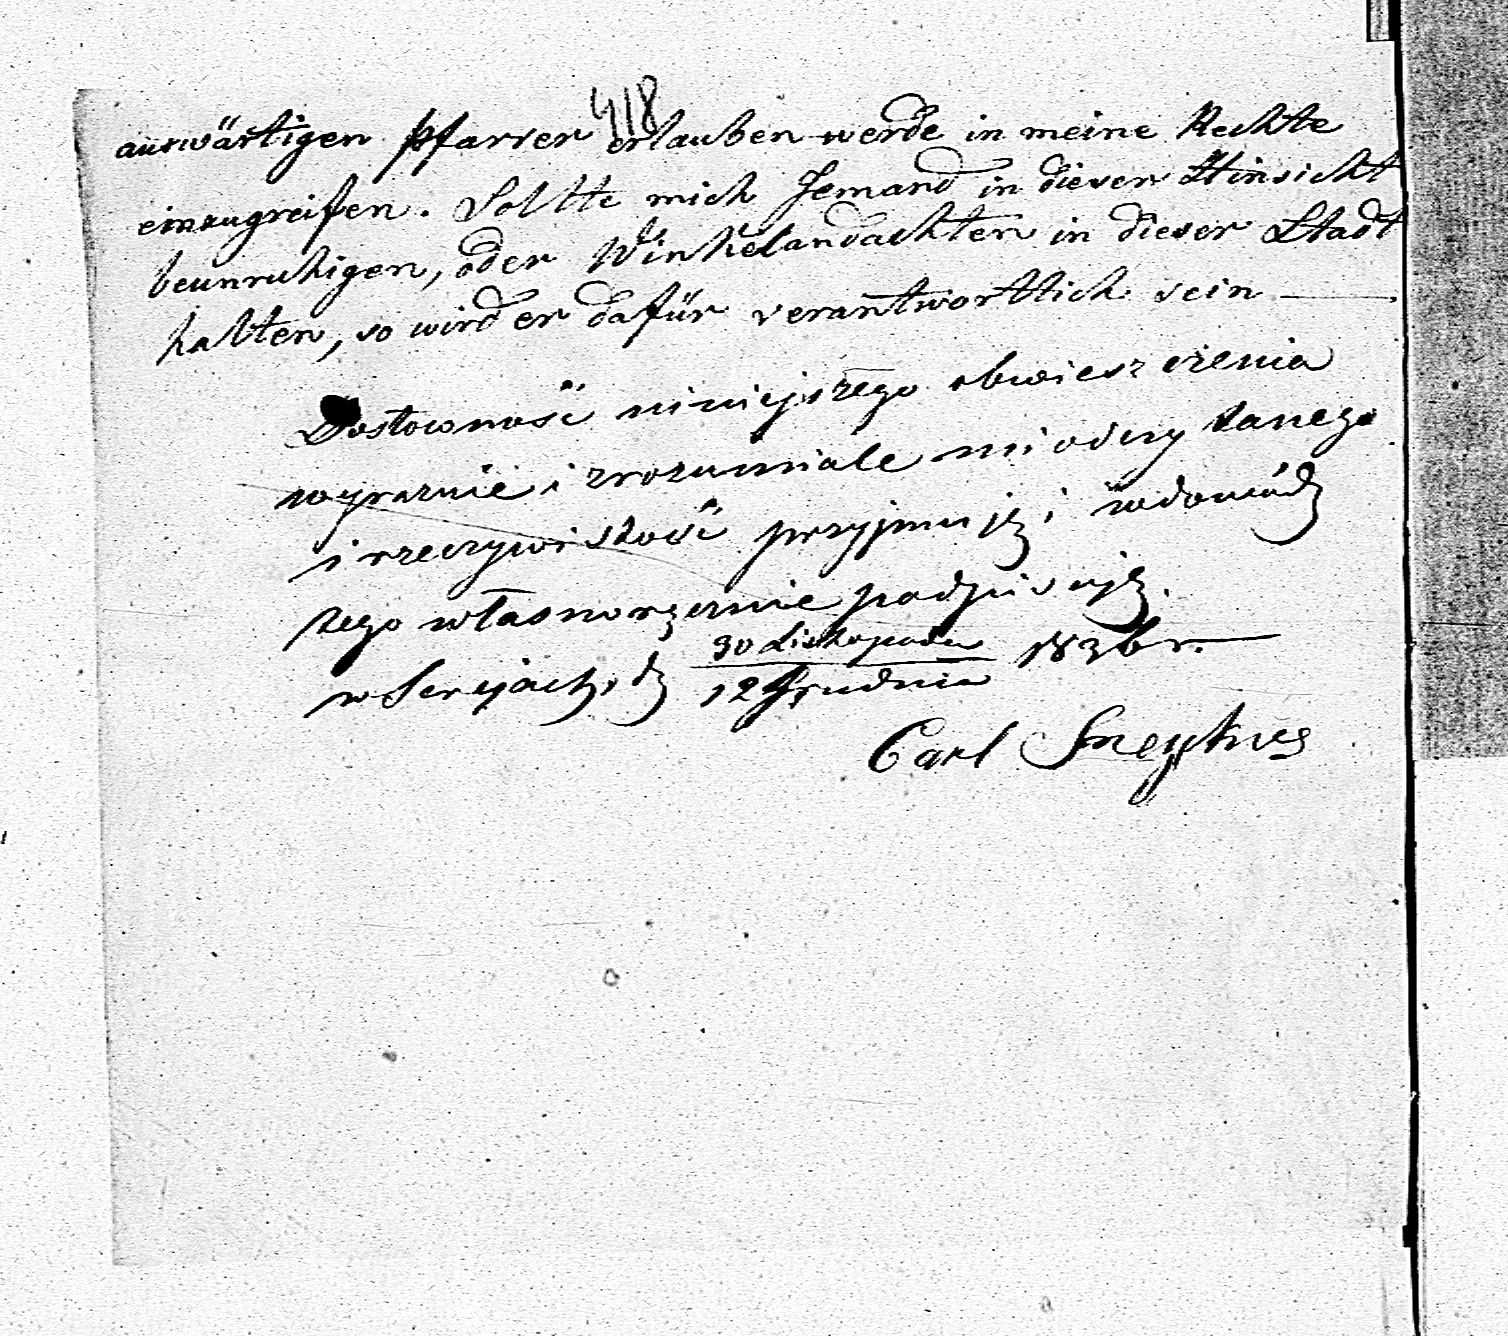 418
auswärtigen Pfarrer erlauben werde in meine Rechte
einzugreifen. Sollte mich Jemand in dieser Hinsicht
beunruhigen, oder Winkelandachten in dieser Stadt
halten, so wird er dafür verantwortlich sein
Dosłowność niniejszego obwieszczenia
wyraznie i zrozumiale mi odczytanego
i rzeczywistość przyjmuję i wdowódz
tego własnoręcznie podpisuję.
w Serejach, d 30 Listopada 1836 r.
12 Grudnia
Carl